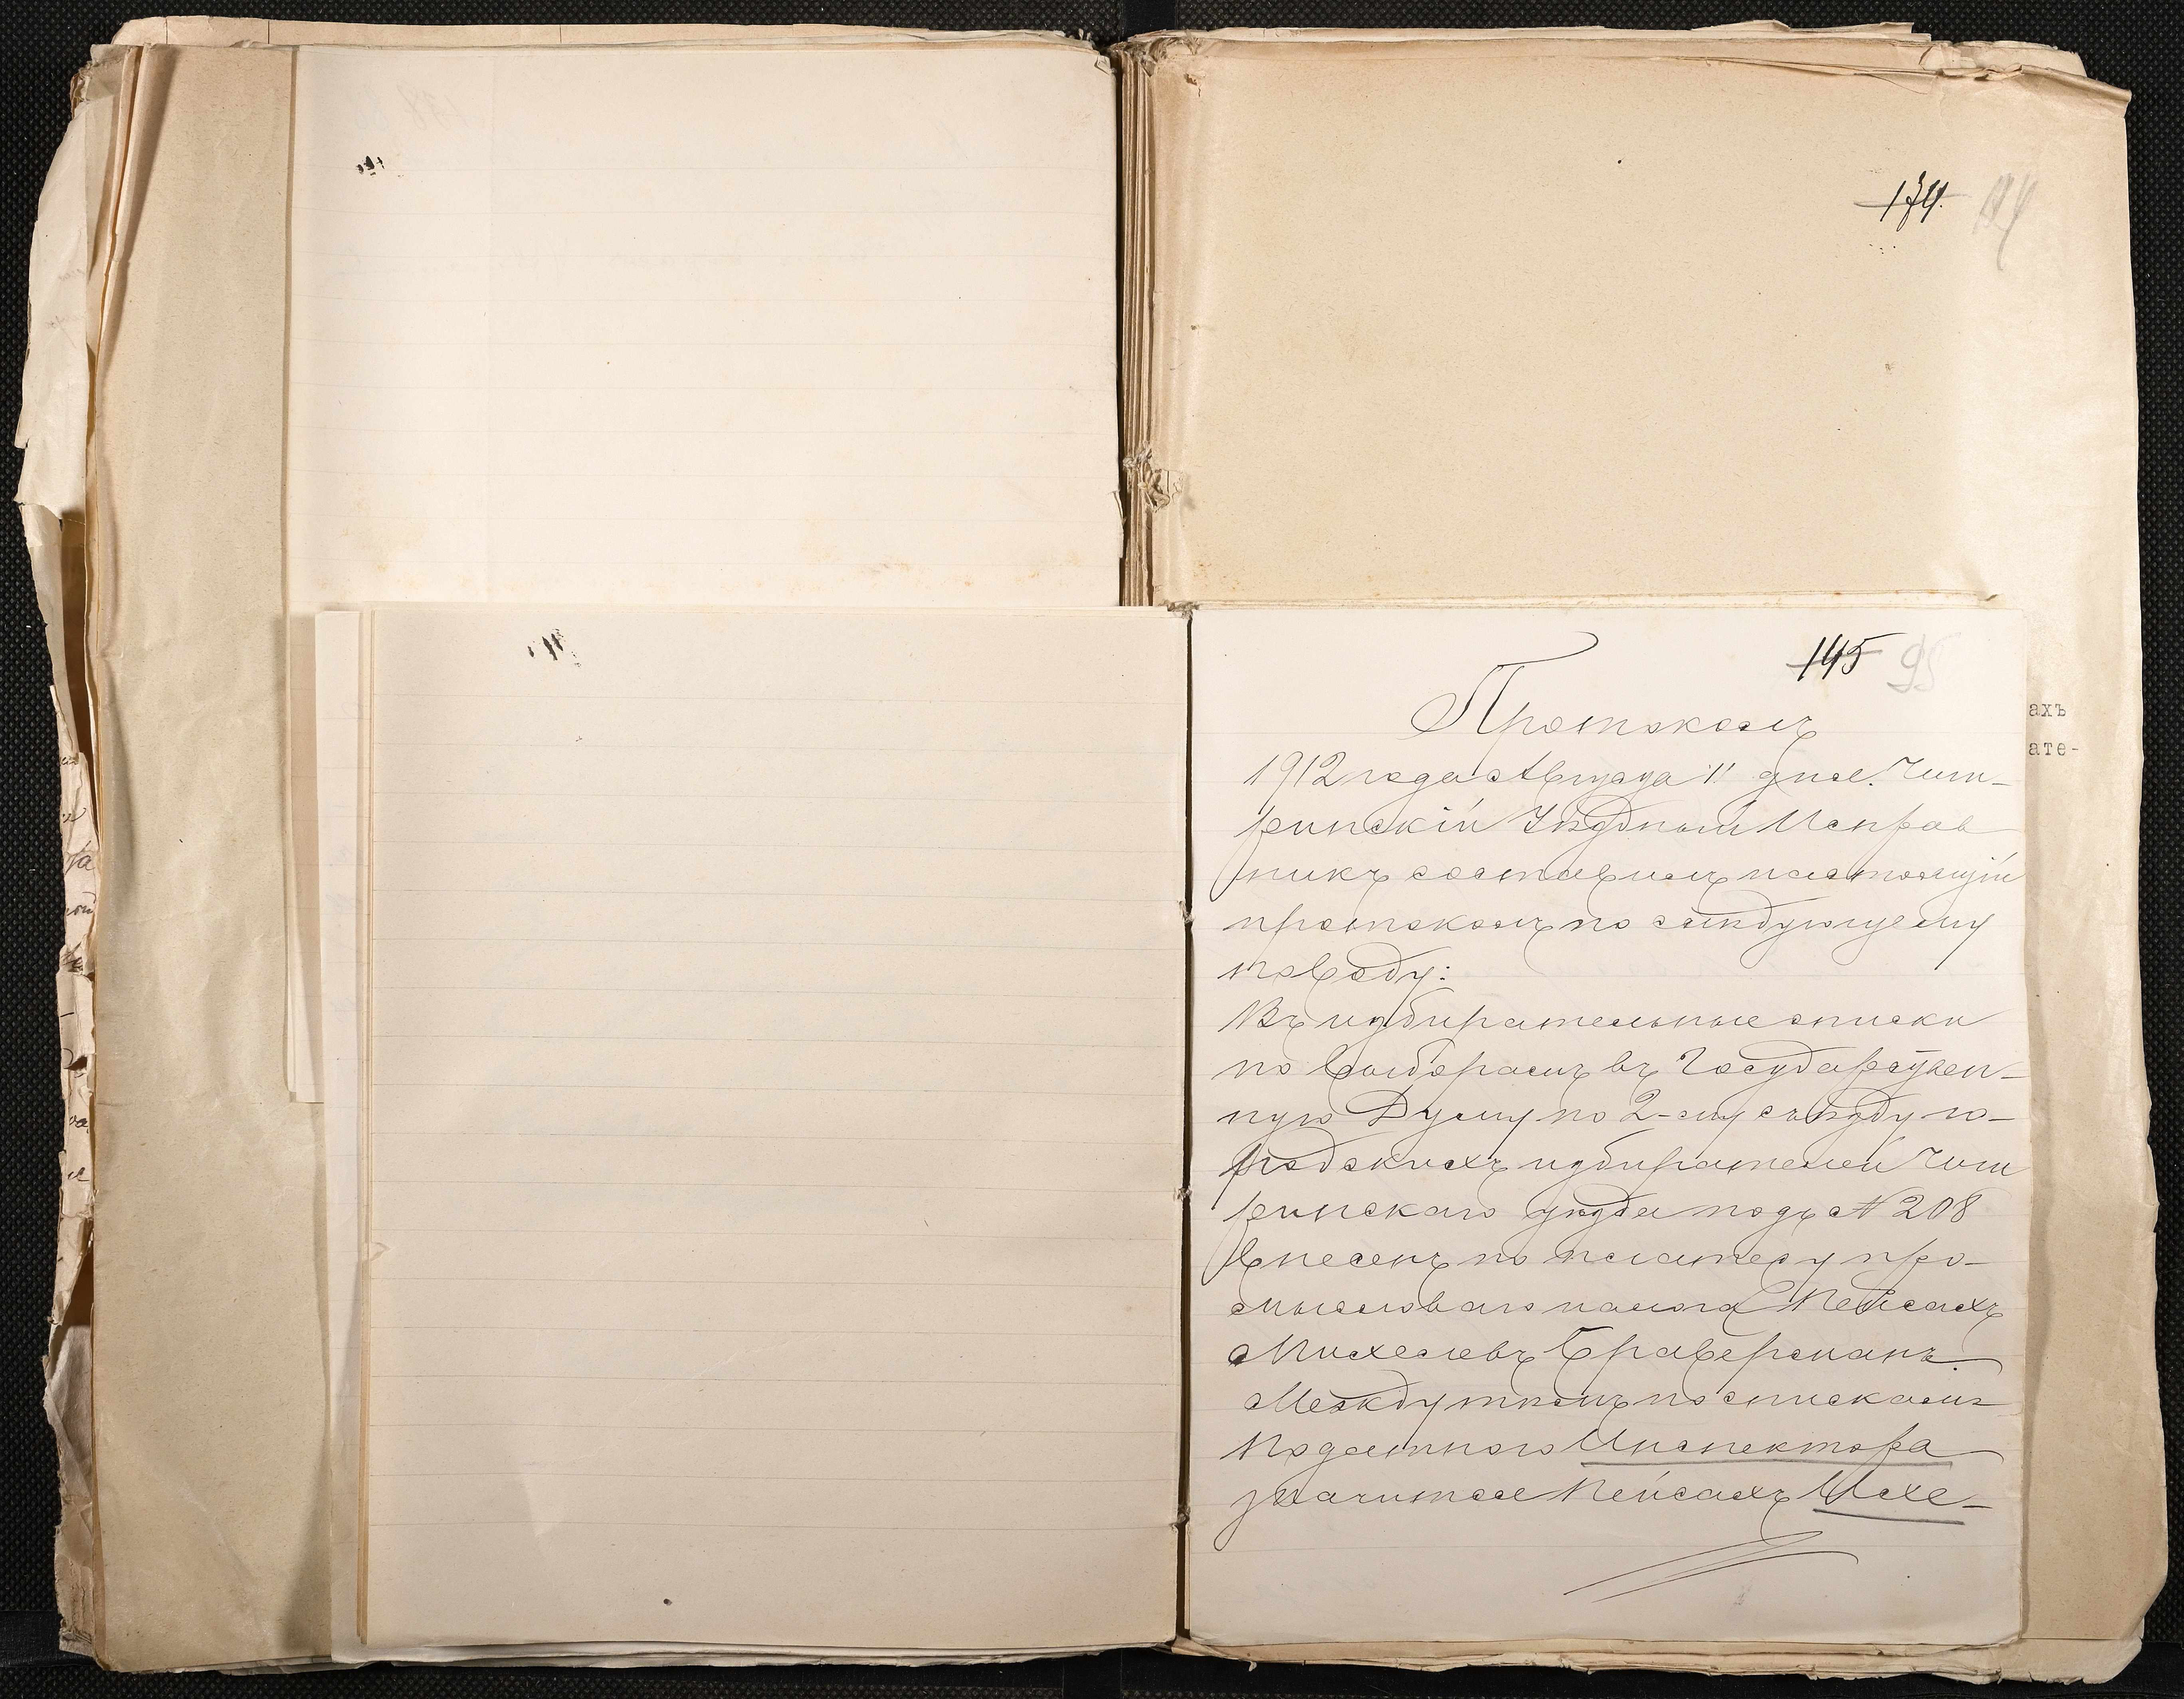 174.
145 95
ахъ
ате-
Протоколъ
1912 года Августа 11 дня. Чиги-
ринскій Уѣздный Исправ
никъ составилъ настоящій
протоколъ по слѣдующему
поводу:
Въ избирательные списки
по выборамъ въ Государствен-
ную Думу по 2-му съѣзду го-
родскихъ избирателей Чиги
ринскаго уѣзда подъ № 208
внесенъ по платежу про-
мысловаго налога Пейсахъ
Михелевъ Браверманъ.
Между тѣмъ по спискамъ
Податного Инспектора
значится Пейсахъ Ихе-